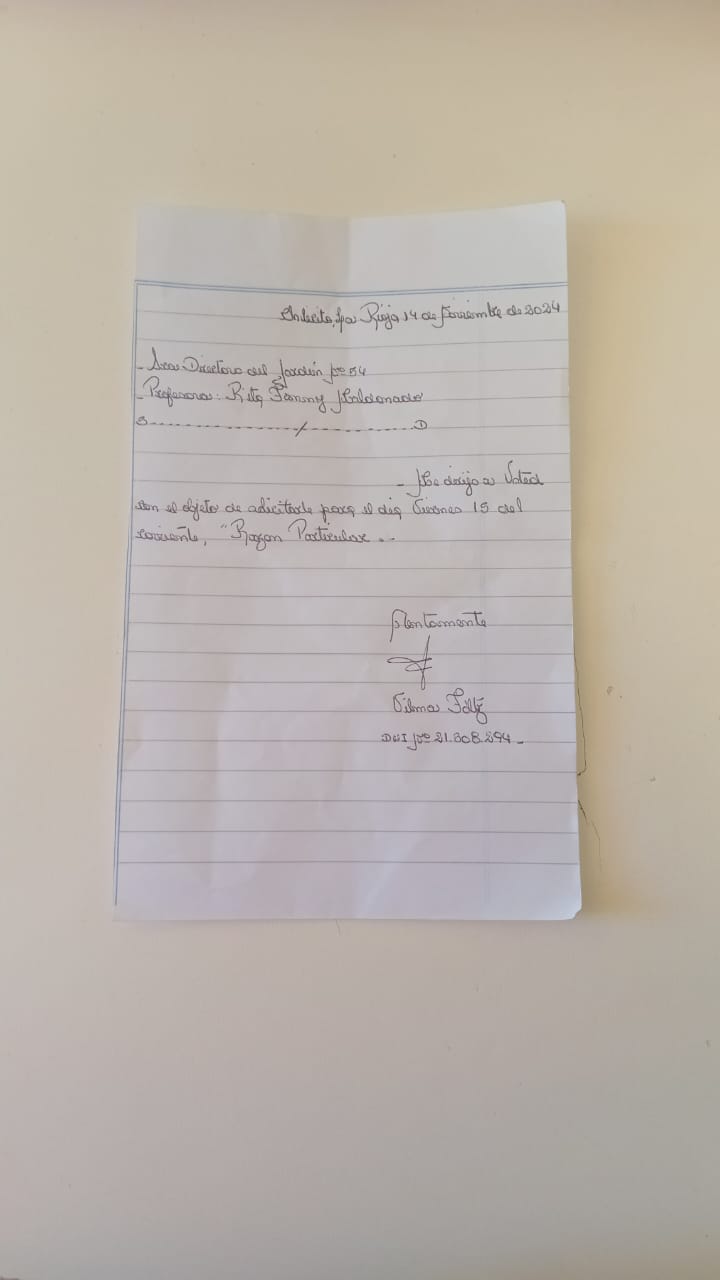 Anlecito, La Rioja 14 de Noviembre de 2024
- Sra. Directora del Jardín Nº 54
- Profesora: Rita Fanny Maldonado
S--------------/--------------D
- Me dirijo a Usted
con el objeto de adicitarle para el día Viernes 15 del
corriente, "Razon Particular. --
Atentamente
Vilma
DNI Nº 21.608.294 -